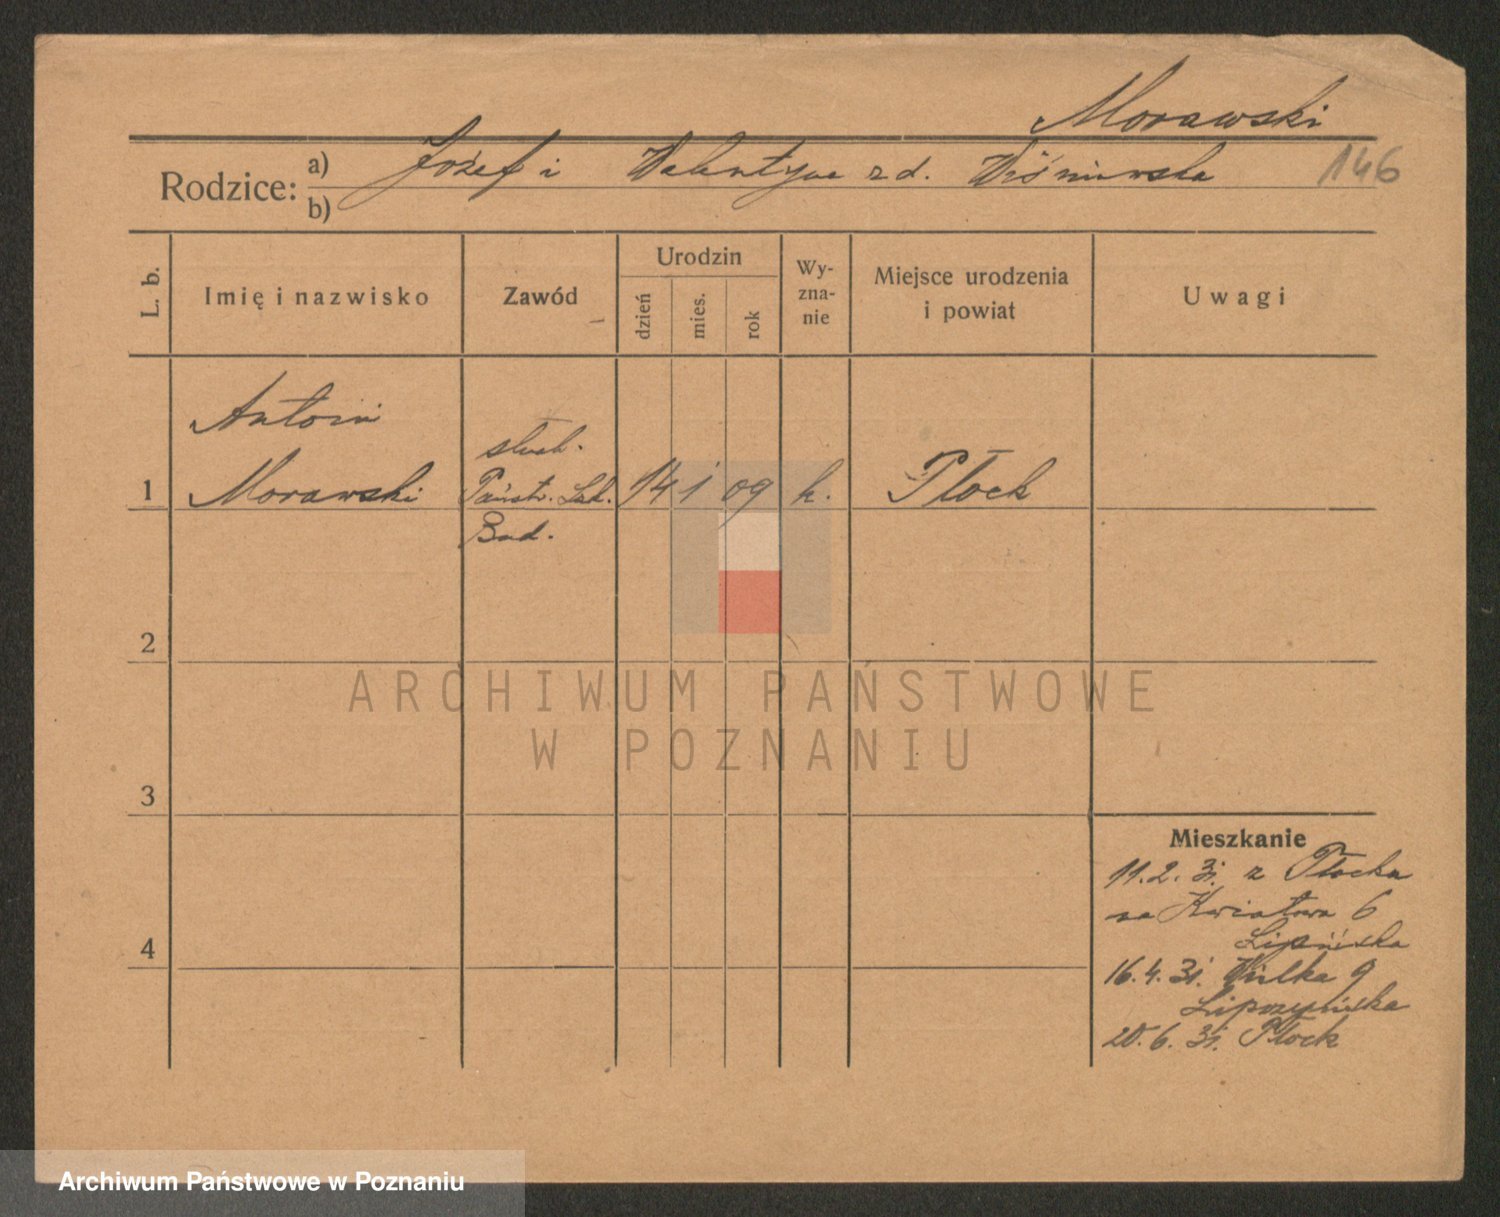 Morawski
Rodzice: a) Józef i Walentyna z d. Wiśniewska 146
b)
L. b. Imię i nazwisko Zawód Urodzin dzień mies. rok Wy-zna-nie Miejsce urodzenia i powiat Uwagi
Antoni
słuch.
1 Morawski Państw. Szk. 14 1 09 k. Płock
Bud.
2
ARCHIWUM PAŃSTWOWE
W POZNANIU
3
Mieszkanie
11.2.31. z Płocka
na Kwiatowa 6
Lipińska
4
16.4.31. Wilka 9
20.6.31. Płock
Archiwum Państwowe w Poznaniu